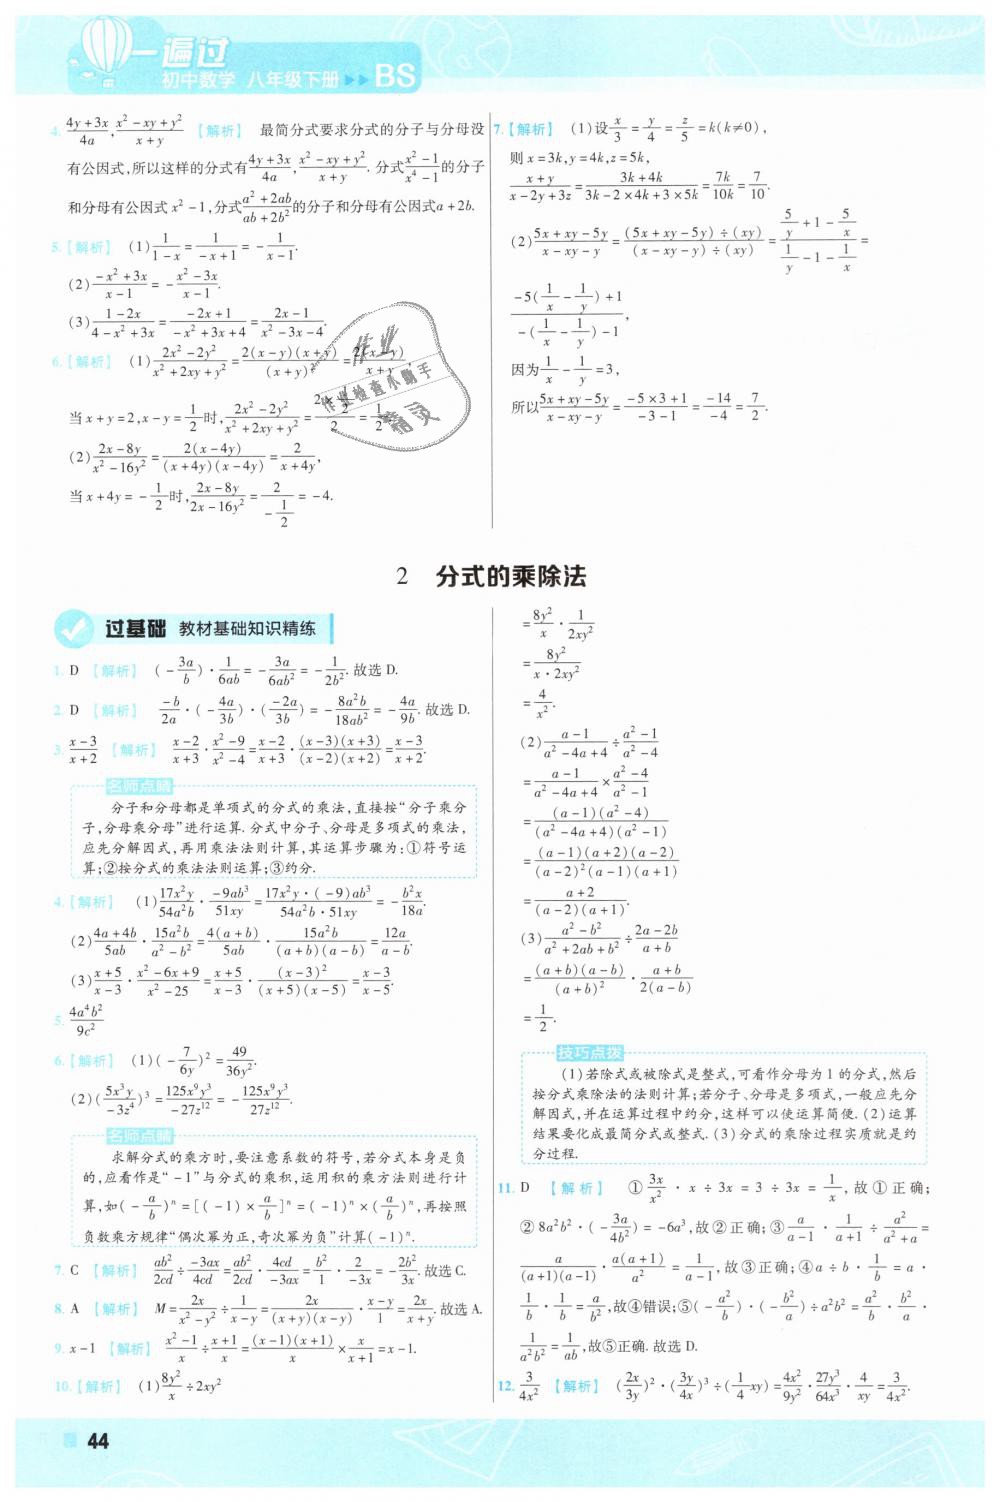 一遍过
初中数学 八年级下册 ▶▶ BS
4. (4y+3x)/(4a), (x²-xy+y²)/(x+y) 【解析】 最简分式要求分式的分子与分母没
有公因式,所以这样的分式有(4y+3x)/(4a), (x²-xy+y²)/(x+y). 分式(x²-1)/(x⁴-1)的分子
和分母有公因式 x²-1,分式(a²+2ab)/(ab+2b²)的分子和分母有公因式a+2b.
5.【解析】 (1) 1/(1-x) = 1/(-x+1) = -1/(x-1).
(2) (-x²+3x)/(x-1) = -(x²-3x)/(x-1).
(3) (1-2x)/(4-x²+3x) = (-2x+1)/(-x²+3x+4) = (2x-1)/(x²-3x-4).
6.【解析】 (1) (2x²-2y²)/(x²+2xy+y²) = 2(x-y)(x+y)/(x+y)² = 2(x-y)/(x+y),
当 x+y=2,x-y=1/2时, (2x²-2y²)/(x²+2xy+y²) = (2×1/2)/2 = 1/2.
(2) (2x-8y)/(x²-16y²) = 2(x-4y)/((x+4y)(x-4y)) = 2/(x+4y),
当 x+4y=-1/2时, (2x-8y)/(2x-16y²) = 2/(-1/2) = -4.
7.【解析】 (1)设 x/3 = y/4 = z/5 = k(k≠0),
则 x=3k,y=4k,z=5k,
(x+y)/(x-2y+3z) = (3k+4k)/(3k-2×4k+3×5k) = 7k/10k = 7/10.
(2) (5x+xy-5y)/(x-xy-y) = ((5x+xy-5y)÷(xy))/((x-xy-y)÷(xy)) = (5/y+1-5/x)/(1/y-1-1/x) =
(-5(1/x-1/y)+1)/(-(1/x-1/y)-1),
因为 1/x-1/y=3,
所以 (5x+xy-5y)/(x-xy-y) = (-5×3+1)/(-3-1) = -14/-4 = 7/2.
作业
作业检查小助手
精灵
2 分式的乘除法
过基础 教材基础知识精练
1. D 【解析】 (-3a/b)·1/(6ab) = -3a/(6ab²) = -1/(2b²). 故选 D.
2. D 【解析】 -b/2a·(-4a/3b)·(-2a/3b) = -8a²b/18ab² = -4a/9b. 故选 D.
3. (x-3)/(x+2) 【解析】 (x-2)/(x+3)·(x²-9)/(x²-4) = (x-2)/(x+3)·((x-3)(x+3))/((x-2)(x+2)) = (x-3)/(x+2).
名师点睛
分子和分母都是单项式的分式的乘法,直接按“分子乘分
子,分母乘分母”进行运算. 分式中分子、分母是多项式的乘法,
应先分解因式,再用乘法法则计算,其运算步骤为:①符号运
算;②按分式的乘法法则运算;③约分.
4.【解析】 (1) 17x²y/54a²b·-9ab³/51xy = 17x²y·(-9)ab³/54a²b·51xy = -b²x/18a.
(2) (4a+4b)/5ab·15a²b/(a²-b²) = 4(a+b)/5ab·15a²b/((a+b)(a-b)) = 12a/(a-b).
(3) (x+5)/(x-3)·(x²-6x+9)/(x²-25) = (x+5)/(x-3)·(x-3)²/((x+5)(x-5)) = (x-3)/(x-5).
5. 4a⁴b²/9c²
6.【解析】 (1)(-7/6y)² = 49/36y².
(2)(5x³y/-3z⁴)³ = 125x⁹y³/-27z¹² = -125x⁹y³/27z¹².
名师点睛
求解分式的乘方时,要注意系数的符号,若分式本身是负
的,应看作是“-1”与分式的乘积,运用积的乘方法则进行计
算,如(-a/b)ⁿ=[(-1)×a/b]ⁿ=(-1)ⁿ×(a/b)ⁿ,再按照
负数乘方规律“偶次幂为正,奇次幂为负”计算(-1)ⁿ.
7. C 【解析】 ab²/2cd÷-3ax/4cd = ab²/2cd·4cd/-3ax = b²/1·2/-3x = -2b²/3x. 故选C.
8. A 【解析】 M = 2x/(x²-y²)÷1/(x-y) = 2x/((x+y)(x-y))·(x-y)/1 = 2x/(x+y). 故选 A.
9. x-1 【解析】 (x²-1)/x÷(x+1)/x = ((x-1)(x+1))/x×x/(x+1) = x-1.
10.【解析】 (1) 8y²/x÷2xy²
= 8y²/x·1/2xy²
= 8y²/(x·2xy²)
= 4/x².
(2) (a-1)/(a²-4a+4)÷(a²-1)/(a²-4)
= (a-1)/(a²-4a+4)×(a²-4)/(a²-1)
= ((a-1)(a²-4))/((a²-4a+4)(a²-1))
= ((a-1)(a+2)(a-2))/((a-2)²(a-1)(a+1))
= (a+2)/((a-2)(a+1)).
(3) (a²-b²)/(a²+2ab+b²)÷(2a-2b)/(a+b)
= ((a+b)(a-b))/(a+b)²·(a+b)/(2(a-b))
= 1/2.
技巧点拨
(1)若除式或被除式是整式,可看作分母为 1 的分式,然后
按分式乘除法的法则计算;若分子、分母是多项式,一般应先分
解因式,并在运算过程中约分,这样可以使运算简便. (2)运算
结果要化成最简分式或整式. (3)分式的乘除过程实质就是约
分过程.
11. D 【解析】 ① 3x/x²·x÷3x=3÷3x=1/x, 故①正确;
②8a²b²·(-3a/4b²)=-6a³,故②正确;③ a/(a-1)·1/(a+1)÷a²/(a²+a)=
a/((a+1)(a-1))·a(a+1)/a²=1/(a-1),故③正确;④a÷b·1/b=a·
1/b·1/b=a/b²,故④错误;⑤(-a²/b)·(-b²/a)÷a²b²=a²/b·b²/a·
1/a²b²=1/ab,故⑤正确. 故选 D.
12. 3/4x² 【解析】 (2x/3y)²·(3y/4x)³÷(1/4xy)=4x²/9y²·27y³/64x³·4/xy=3/4x².
44